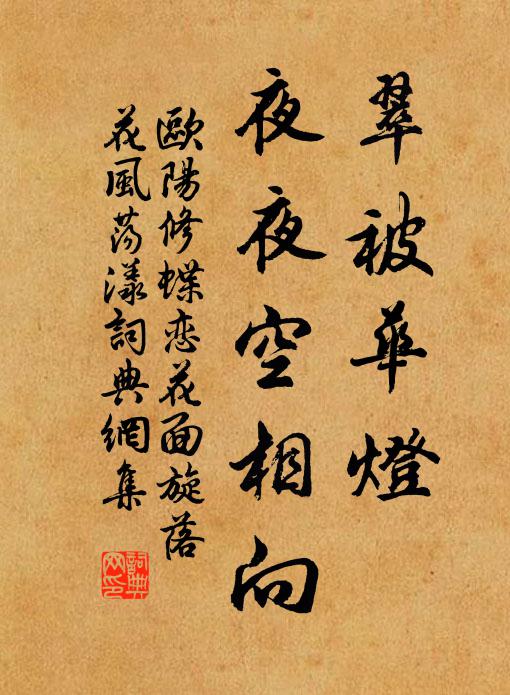 翠被華燈
夜夜空相向
歐陽修蝶恋花面旋落
花風荡漾詞典網集
詞典
网印